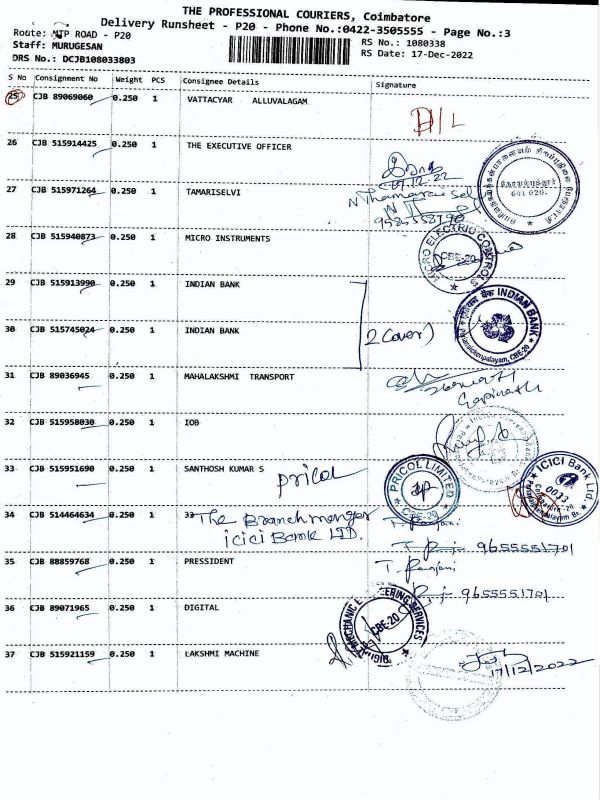 THE PROFESSIONAL COURIERS, Coimbatore
Delivery Runsheet - P20 - Phone No.:0422-3505555 - Page No.:3
Route: NTP ROAD - P20
RS No.: 1080338
Staff: MURUGESAN
RS Date: 17-Dec-2022
DRS No.: DCJB108033803
S No Consignment No Weight PCS Consignee Details Signature
25 CJB 89069060 0.250 1 VATTACYAR ALLUVALAGAM
D/L
26 CJB 515914425 0.250 1 THE EXECUTIVE OFFICER
27 CJB 515971264 0.250 1 TAMARISELVI
28 CJB 515940873 0.250 1 MICRO INSTRUMENTS
MICRO ELECTRIC CONTROLS CBE-20
29 CJB 515913990 0.250 1 INDIAN BANK
INDIAN BANK CBE-20
30 CJB 515745024 0.250 1 INDIAN BANK
2 Cover)
31 CJB 89036945 0.250 1 MAHALAKSHMI TRANSPORT
Gopinath
32 CJB 515958030 0.250 1 IOB
33 CJB 515951690 0.250 1 SANTHOSH KUMAR S
Pricol
PRICOL LIMITED CBE-20
ICICI Bank Ltd. 0033
34 CJB 514464634 0.250 1 33
The Branch manger
icici Bank LTD.
T. Ranjani
9655551701
35 CJB 88859768 0.250 1 PRESSIDENT
T. Ranjani
9655551701
36 CJB 89071965 0.250 1 DIGITAL
CBE-20
37 CJB 515921159 0.250 1 LAKSHMI MACHINE
17/12/2022